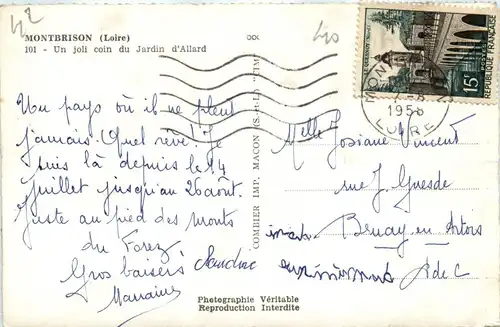 42
MONTBRISON (Loire)
101 - Un joli coin du Jardin d'Allard
Un pays où il ne pleut
jamais. Quel rêve! Je
suis là depuis le 14
Juillet jusqu'au 26 août.
Juste au pied des monts
du Forez
Gros baisers
Marraine
COMBIER IMP. MACON (S.-et-L.) "CIM"
Photographie Véritable
Reproduction Interdite
15F
REPUBLIQUE FRANÇAISE
1958
LOIRE
Melle Josiane Vincent
rue J. Guesde
Bruay en Artois
P de C